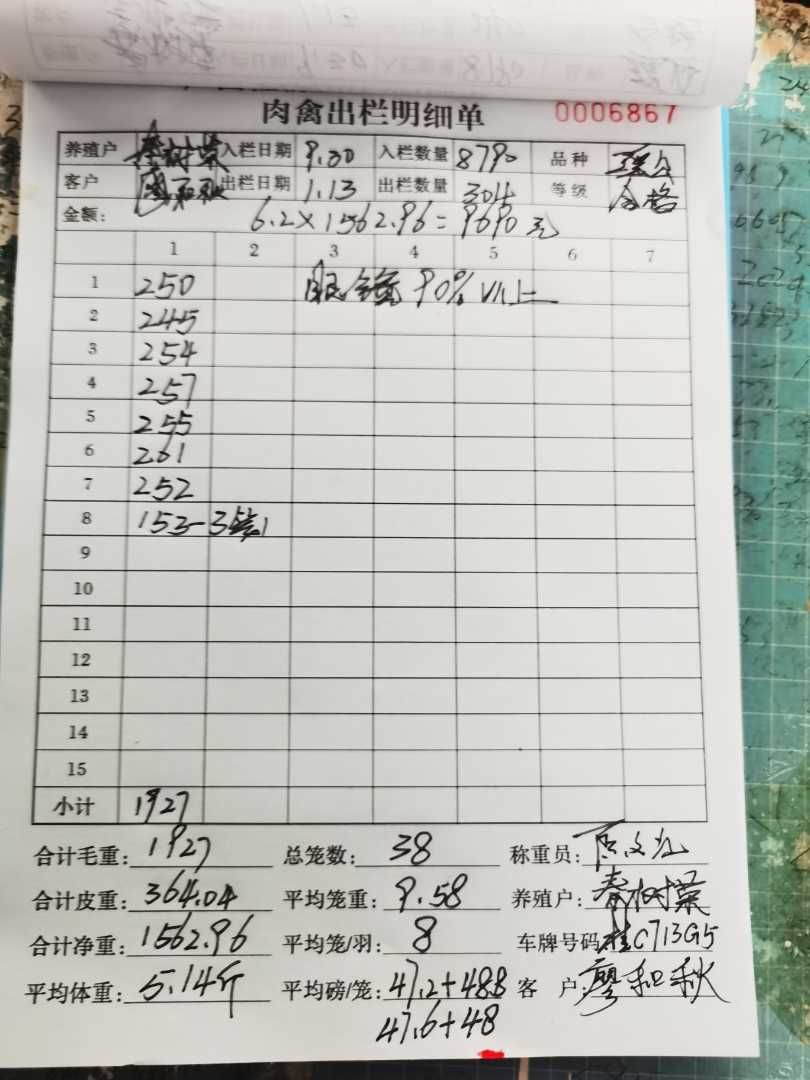 肉禽出栏明细单 0006867
养殖户 秦树荣 入栏日期 9.30 入栏数量 8790 品种
客户 廖和秋 出栏日期 1.13 出栏数量 304 等级 合格
金额: 6.2×1562.96=9690元
1 2 3 4 5 6 7
1 250 眼镜90%以上
2 245
3 254
4 257
5 255
6 261
7 252
8 153-3笼
9
10
11
12
13
14
15
小计 1927
合计毛重: 1927 总笼数: 38 称重员:
合计皮重: 364.04 平均笼重: 9.58 养殖户: 秦树荣
合计净重: 1562.96 平均笼/羽: 8 车牌号码 桂C713G5
平均体重: 5.14斤 平均磅/笼: 47.2+48.8 客户: 廖和秋
47.6+48